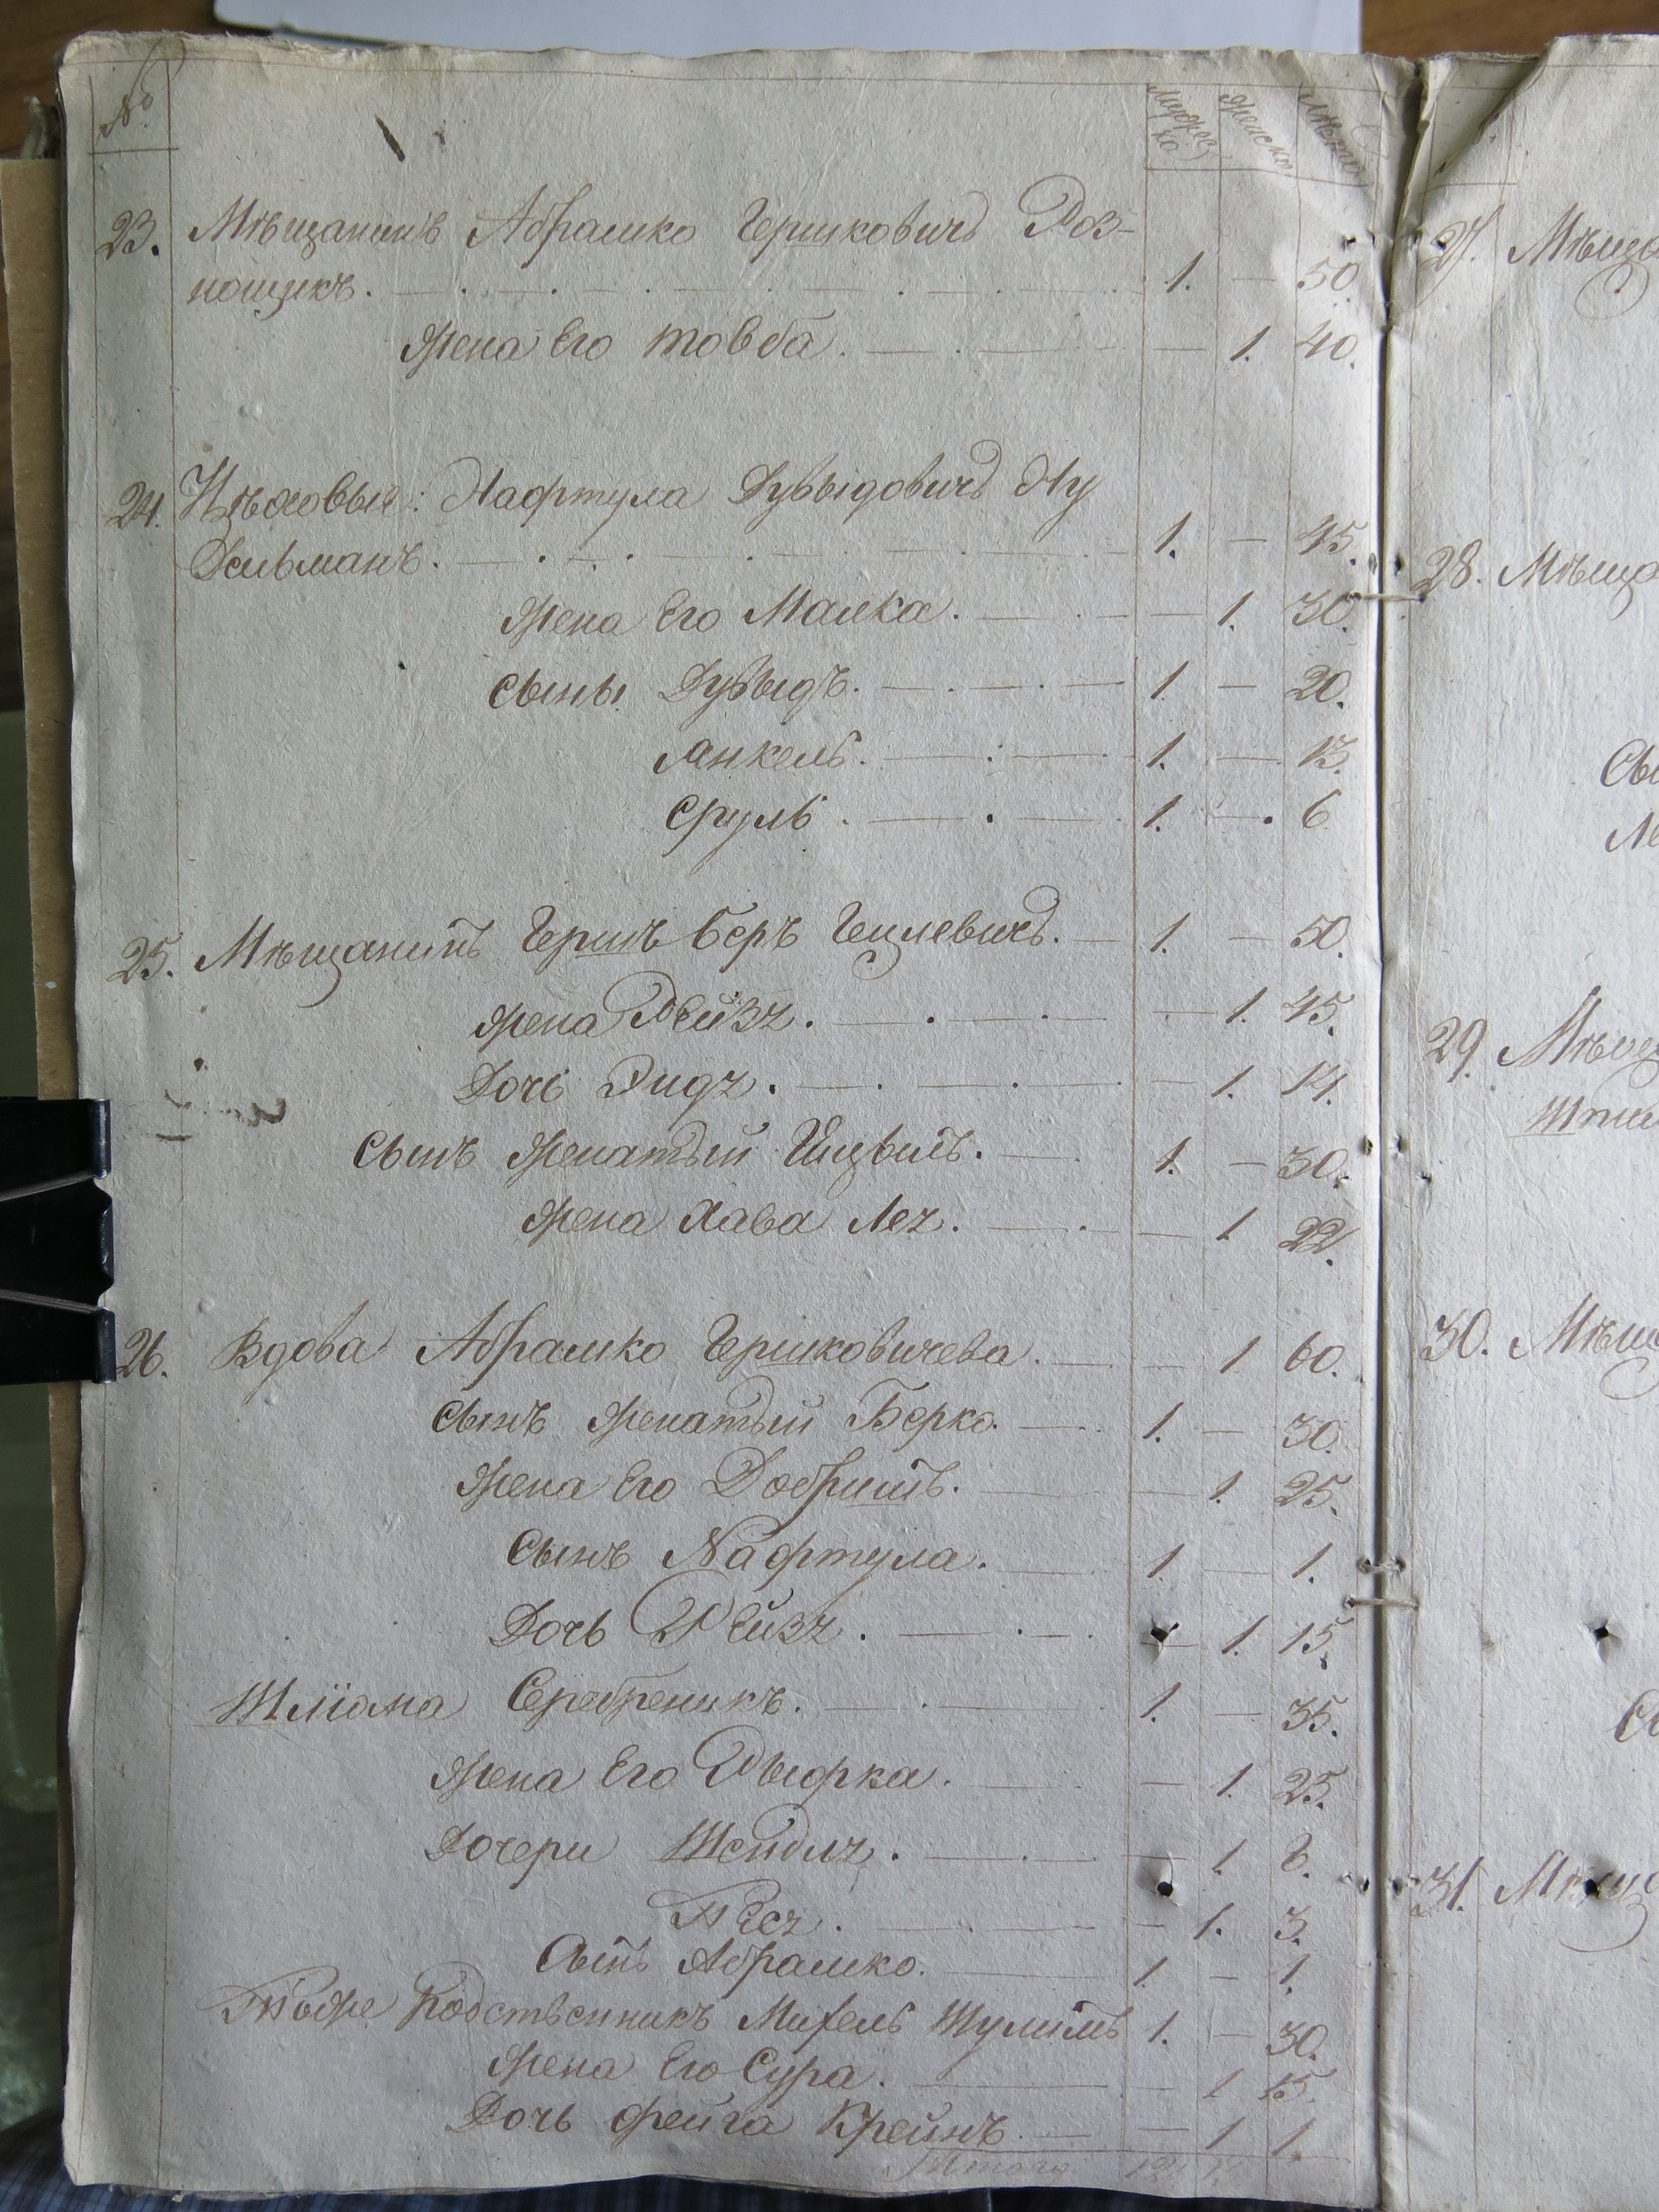 № Мужес ка Женска Лѣта
23. Мѣщанинъ Абрамко Гершковичъ Роз-
нощикъ. 1. — 50.
Жена Его Товба. — 1. 40.
24. Цѣховыя: Нафтула Дувыдовичъ Ну
Дельманъ. 1. — 45.
Жена Его Малка. — 1. 30.
Сыны Дувыдъ. 1. — 20.
Янкель. 1. — 13.
Сруль. 1. — 6.
25. Мѣщанинъ Гершъ Беръ Гецлевичъ. 1. — 50.
Жена Рейзя. — 1. 45.
Дочь Эидя. — 1. 14.
Сынъ Женатый Гицвиль. 1. — 30.
Жена Хава Лея. — 1 22.
26. Вдова Абрамко Гершковичева. — 1 60.
Сынъ Женатый Берко. 1. — 30.
Жена Его Добришъ. — 1. 25.
Сынъ Нафтула. 1. — 1.
Дочь Рейзя. — 1. 15.
Шліома Серебреникъ. 1. — 35.
Жена Его Рыфка. — 1. 25.
Дочери Шейдля. — 1. 8.
Песя. — 1. 3.
Сынъ Абрамко. 1 — 1.
Тоже Родственникъ Михель Шулимъ 1. — 30.
Жена Его Сура. — 1 15.
Дочь Фейга Крейнъ. — 1 1.
Итого 12
27. Мѣща
28. Мѣща
Сы
29. Мѣщ
30. Мѣщ
31. Мѣщ